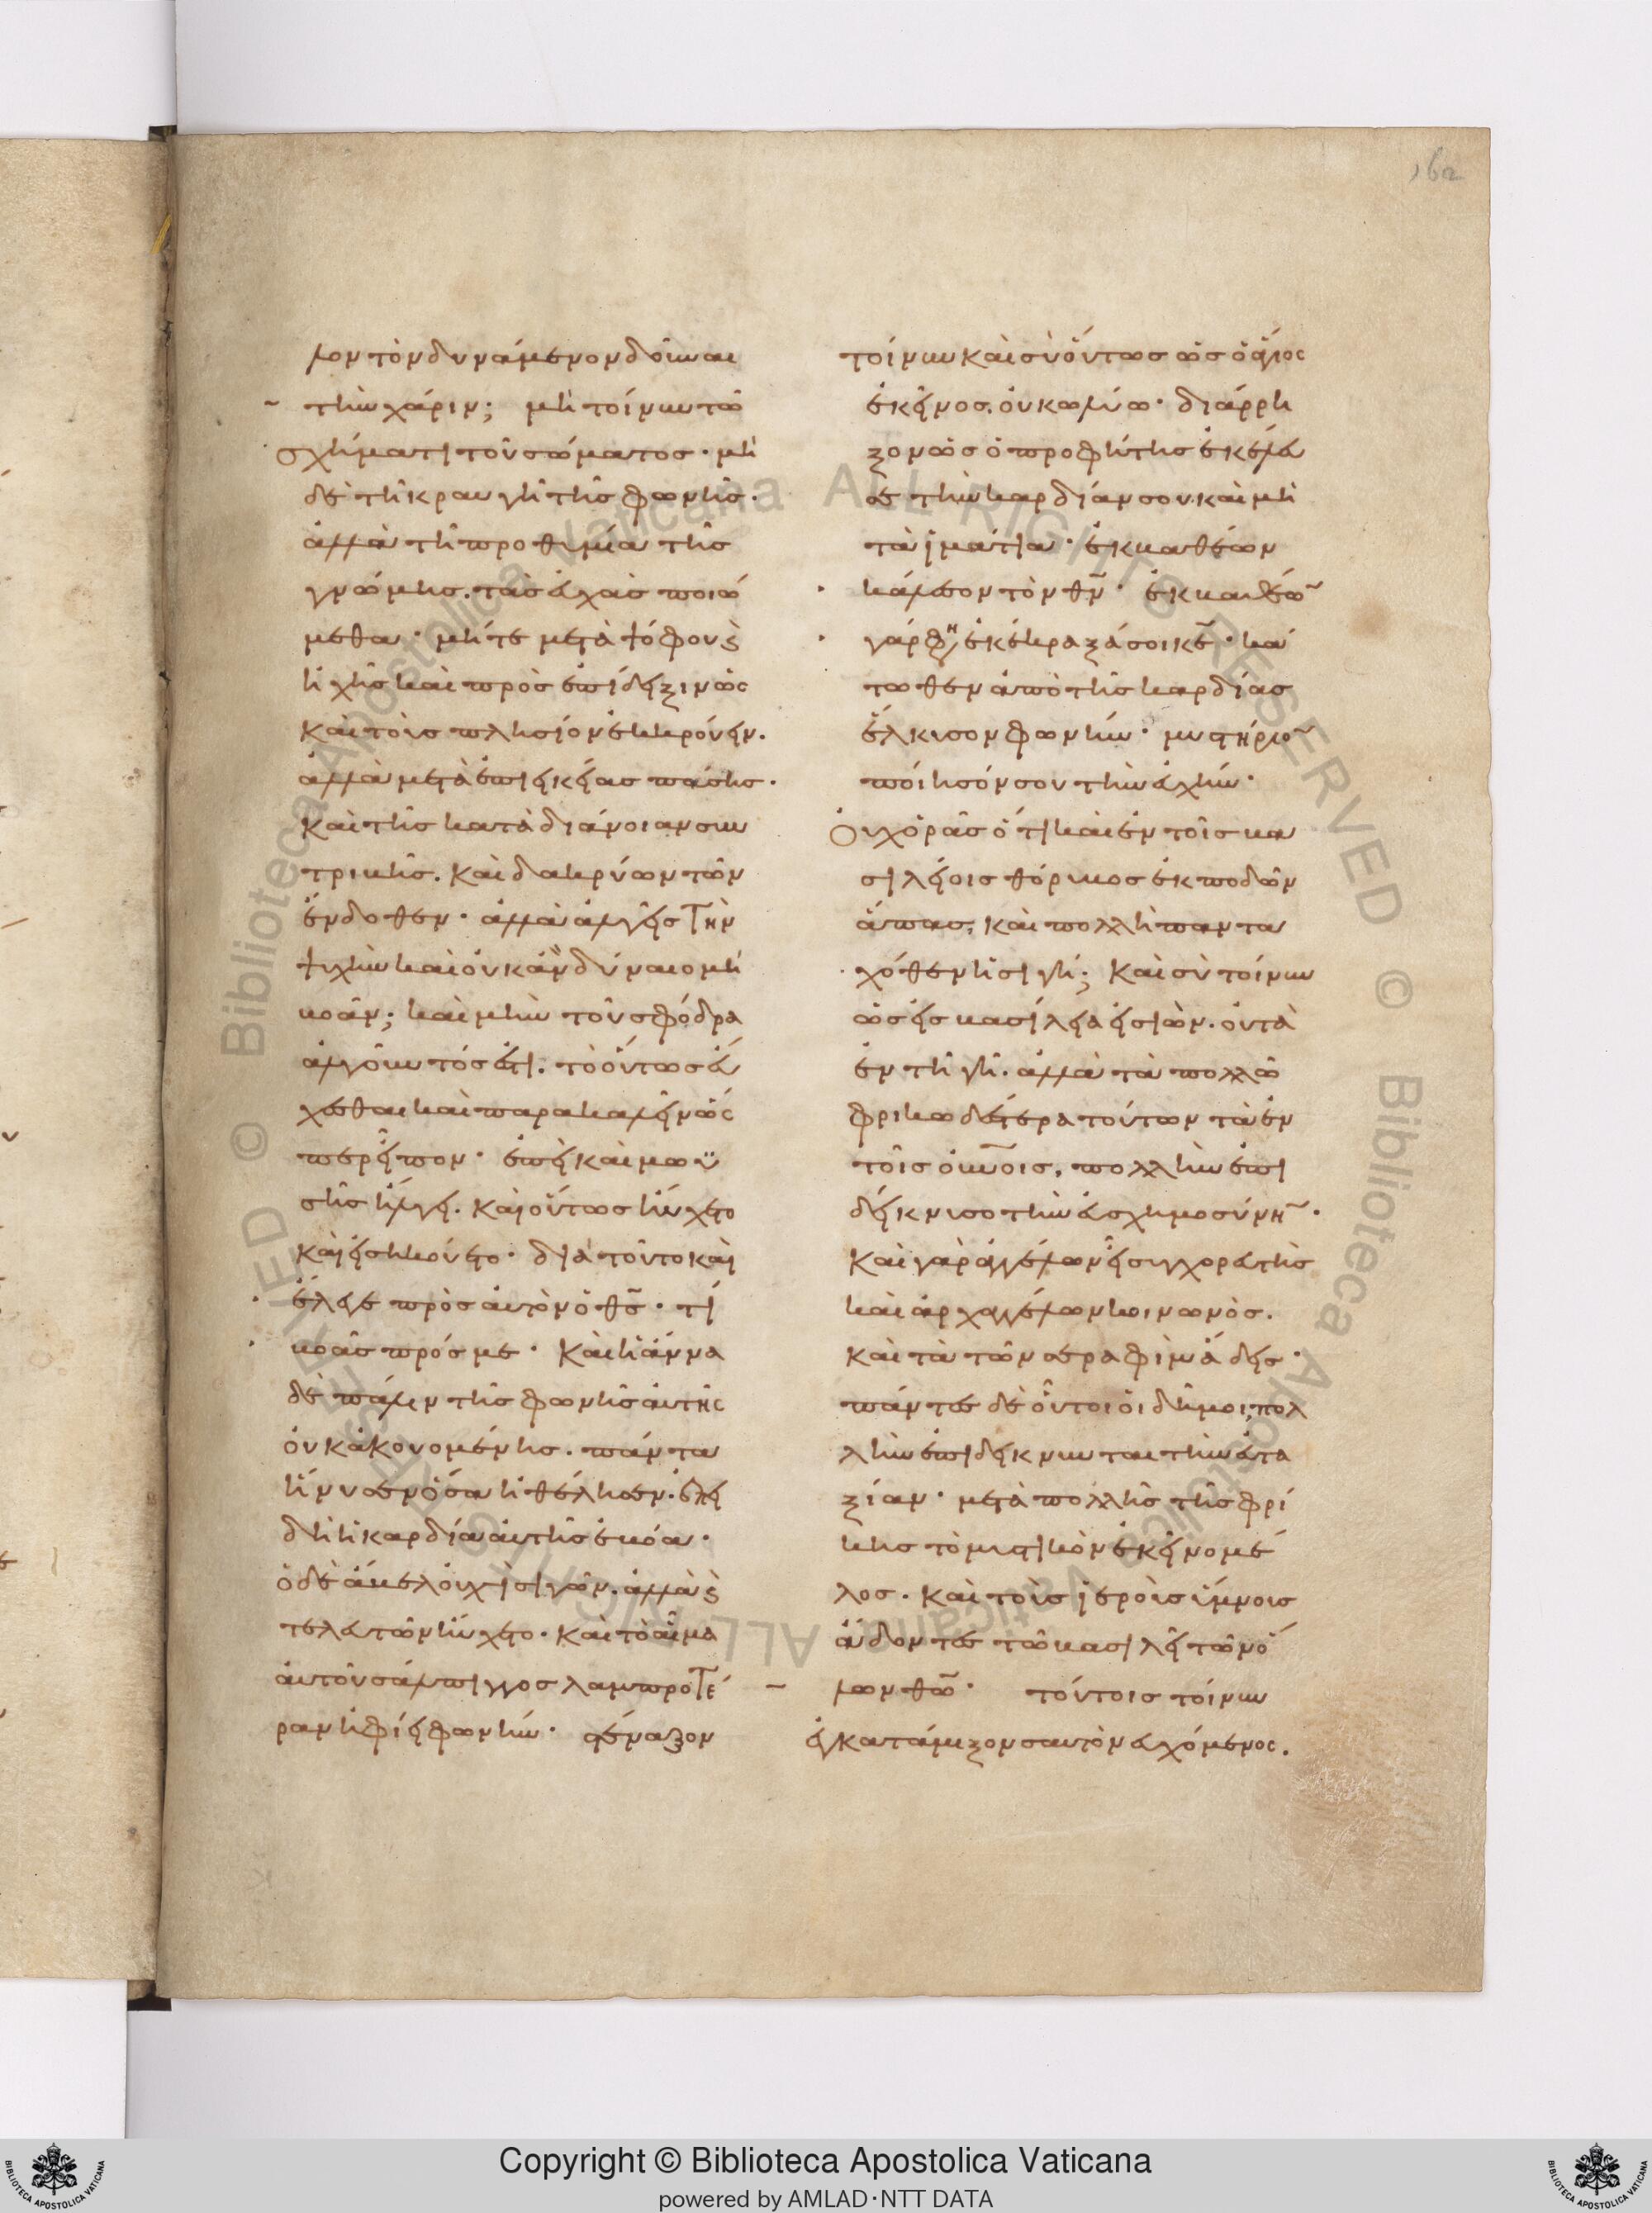 162
μον τὸν δυνάμενον δοῦναι
τὴν χάριν; μὴ τοίνυν τῶ
σχήματι τοῦ σώματος· μὴ
δὲ τῆ κραυγῆ τῆς φωνῆς·
ἀλλὰ τῆ προθυμία τῆς
γνώμης. τὰς εὐχὰς ποιώ
μεθα· μήτε μετὰ ψόφου ϗ
ἠχῆς καὶ πρὸς ἐπίδειξιν ὡς
καὶ τοὺς πλησίον ἐκκρούειν.
ἀλλὰ μετὰ ἐπιεικείας πάσης·
καὶ τῆς κατὰ διάνοιαν συν
τριβῆς. καὶ δακρύων τῶν
ἔνδοθεν· ἀλλὰ ἀλγεῖς τὴν
ψυχὴν καὶ οὐκ ἂν δύναιο μὴ
βοᾶν; καὶ μὴν τοῦ σφόδρα
ἀλγοῦντός ἐστι. τὸ οὕτως εὔ
χεσθαι καὶ παρακαλεῖν ὡς
περ εἶπον· ἐπεὶ καὶ μωϋ
σῆς ἤλγει. καὶ οὕτως ηὔχετο
καὶ εἰσηκούετο· διὰ τοῦτο καὶ
ἔλεγε πρὸς αὐτὸν ὁ θς· τί
βοᾶς πρός με· καὶ ἡ ἄννα
δὲ πάλιν τῆς φωνῆς αὐτῆς
οὐκ ἀκουομένης. πάντα
ἤνυσεν ὅσα ἠθέλησεν. ἐπεὶ
δὴ ἡ καρδία αὐτῆς ἐβόα·
ὁ δὲ ἄβελ οὐχὶ σιγῶν. ἀλλὰ ϗ
τελευτῶν ηὔχετο. καὶ τὸ αἷμα
αὐτοῦ σάλπιγγος λαμπροτέ
ραν ἠφίει φωνήν· στέναξον
τοίνυν καὶ σὺ οὕτως ὡς ὁ ἅγιος
ἐκεῖνος. οὐ κωλύω· διάρρη
ξον ὡς ὁ προφήτης ἐκέλευ
σε τὴν καρδίαν σου. καὶ μὴ
τὰ ἱμάτια· ἐκ βαθέων
κάλεσον τὸν θν· ἐκ βαθέω
γάρ φη ἐκέκραξά σοι κε· κά
τωθεν ἀπὸ τῆς καρδίας
ἕλκυσον φωνήν· μυστήριο
ποίησόν σου τὴν εὐχήν·
Οὐχ ὁρᾶς ὅτι καὶ ἐν τοῖς βα
σιλείοις θόρυβος ἐκ ποδῶν
ἅπας, καὶ πολλὴ παντα
χόθεν ἡ σιγή; καὶ σὺ τοίνυν
ὡς εἰς βασίλεια εἰσιὼν. οὐ τὰ
ἐν τῆ γῆ. ἀλλὰ τὰ πολλῶ
φρικωδέστερα τούτων τὰ ἐν
τοῖς οὐνοις, πολλὴν ἐπι
δείκνυσο τὴν εὐσχημοσύνη·
καὶ γὰρ ἀγγέλων εἶ συγχορευτὴς
καὶ ἀρχαγγέλων κοινωνὸς.
καὶ τὰ τῶν σεραφὶμ ἄδεις·
πάντες δὲ οὗτοι οἱ δῆμοι, πολ
λὴν ἐπιδείκνυνται τὴν εὐτα
ξίαν· μετὰ πολλῆς τῆς φρί
κης τὸ μυστικὸν ἐκεῖνο μέ
λος. καὶ τοὺς ἱεροὺς ὕμνους
ἄδοντες τῶ βασιλεῖ τῶν ὅ
λων θῶ· τούτοις τοίνυν
ἐγκατάμιξον σαυτὸν εὐχόμενος.
© Biblioteca Apostolica Vaticana ALL RIGHTS RESERVED © Biblioteca Apostolica Vaticana ALL RIGHTS RESERVED
Copyright © Biblioteca Apostolica Vaticana
powered by AMLAD·NTT DATA
BIBLIOTECA APOSTOLICA VATICANA
BIBLIOTECA APOSTOLICA VATICANA